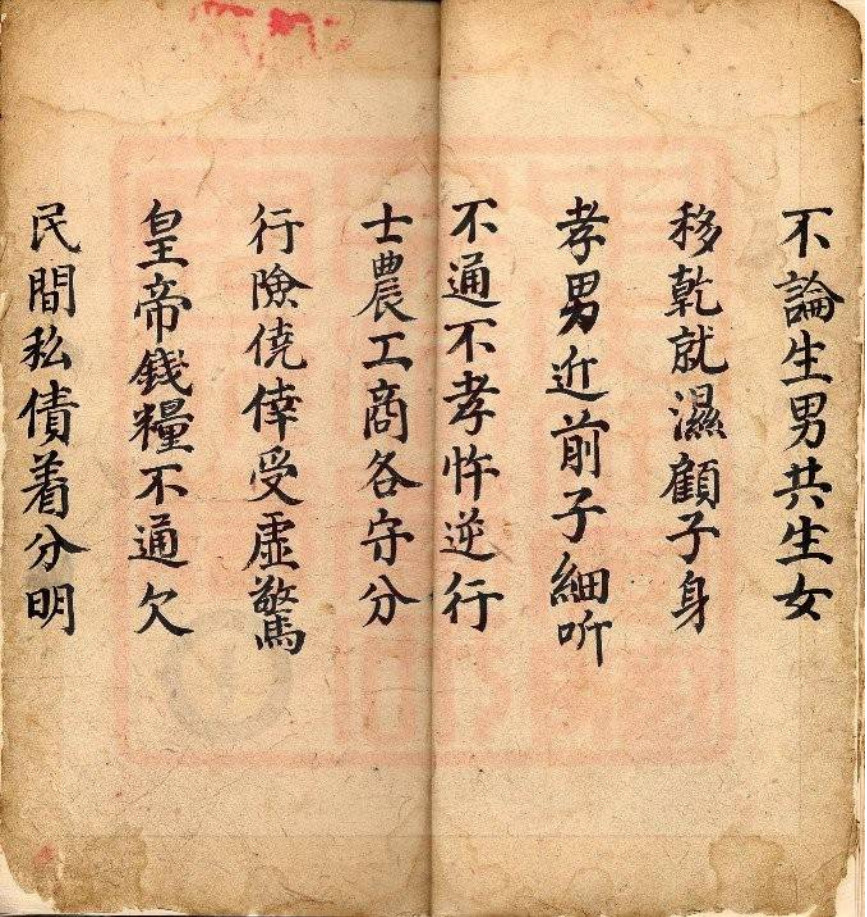 不論生男共生女
移乾就濕顧子身
孝男近前子細听
不通不孝忤逆行
士農工商各守分
行險僥倖受虛驚
皇帝錢糧不通欠
民間私債着分明